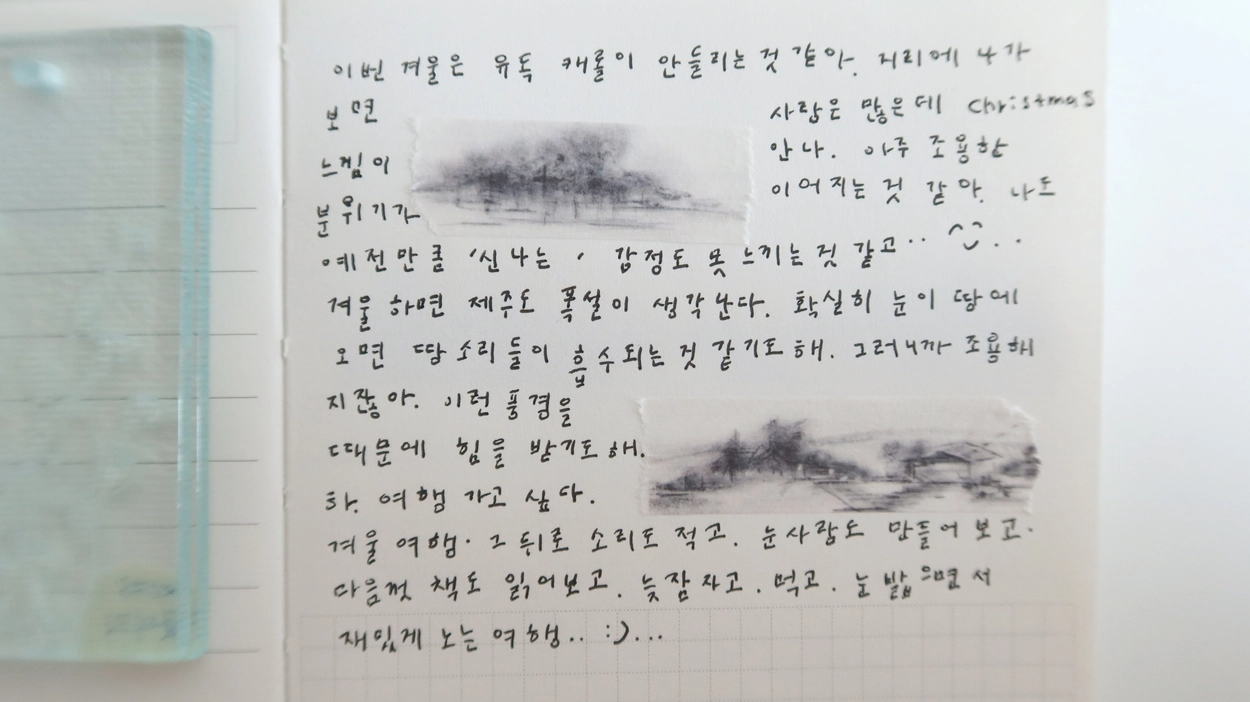 이번 겨울은 유독 캐롤이 안들리는것 같아. 거리에 나가
보면 사람은 많은데 christmas
느낌이 안 나. 아주 조용한
분위기가 이어지는 것 같아. 나도
예전만큼 '신나는' 감정도 못 느끼는 것 같고·· ^◡^..
겨울 하면 제주도 폭설이 생각난다. 확실히 눈이 땅에
오면 땅 소리들이 흡수되는 것 같기도 해. 그러니까 조용해
지잖아. 이런 풍경을
때문에 힘을 받기도 해.
하. 여행 가고 싶다.
겨울 여행. 그 뒤로 소리도 적고. 눈사람도 만들어 보고.
다음껏 책도 읽어보고. 늦잠 자고. 먹고. 눈 밟으면서
재밌게 노는 여행.. :)...